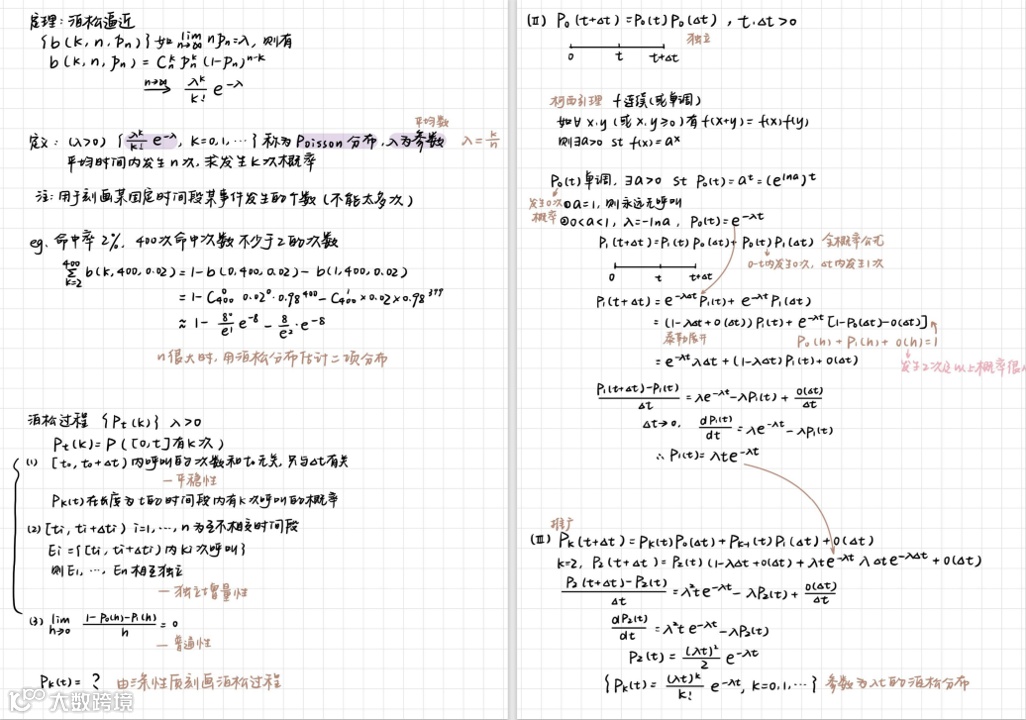 定理：泊松逼近
{b(k,n,pn)} 如 lim n→∞ npn=λ, 则有
b(k,n,pn) = Cₙᵏ pₙᵏ (1-pn)ⁿ⁻ᵏ
n→∞ ⟹ λᵏ/k! e^-λ
平均数
定义：(λ>0) {λᵏ/k! e^-λ, k=0,1,…} 称为 Poisson 分布, λ为参数 λ=k/n
平均时间内发生n次, 求发生k次概率
注：用于刻画某固定时间段某事件发生的个数 (不能太多次)
eg. 命中率 2%, 400次命中次数 不少于2的次数
400 Σ k=2 b(k,400,0.02) = 1-b(0,400,0.02) - b(1,400,0.02)
= 1- C⁰₄₀₀ 0.02⁰·0.98⁴⁰⁰ - C¹₄₀₀ × 0.02 × 0.98³⁹⁹
≈ 1- 8⁰/e¹ e⁻⁸ - 8/e² · e⁻⁸
n很大时, 用泊松分布估计二项分布
泊松过程 {Pt(k)} λ>0
Pt(k) = P([0,t]有k次)
(1) [t₀,t₀+Δt) 内呼叫的次数和t₀无关, 只与Δt有关
—平稳性
Pk(t) 在长度为t的时间段内有k次呼叫的概率
(2) [ti, ti+Δti) i=1,…,n 为互不相交时间段
Ei = {[ti, ti+Δti) 内ki次呼叫}
则E₁,…En相互独立
—独立增量性
(3) lim h→0 1-P₀(h)-P₁(h)/h = 0
—普通性
Pk(t)= ? 由三条性质刻画泊松过程
(Ⅱ) P₀(t+Δt) = P₀(t)P₀(Δt), t.Δt>0
独立
0 t t+Δt
柯西引理 f连续(或单调)
如∀x.y (或x.y≥0) 有 f(x+y)=f(x)f(y)
则∃a>0 st f(x)=aˣ
P₀(t)单调, ∃a>0 st P₀(t)=aᵗ=(e^lna)ᵗ
发生0次概率
①a=1, 则永远无呼叫
②0<a<1, λ=-lna, P₀(t)=e^-λt
P₁(t+Δt)=P₁(t)P₀(Δt)+P₀(t)P₁(Δt) 全概率公式
0-t内发生0次, Δt内发生1次
0 t t+Δt
P₁(t+Δt) = e^-λΔt P₁(t) + e^-λt P₁(Δt)
= (1-λΔt+o(Δt))P₁(t) + e^-λt [1-P₀(Δt)-o(Δt)]
泰勒展开 P₀(h)+P₁(h)+o(h)=1
= e^-λt λΔt + (1-λΔt)P₁(t) + o(Δt)
发生2次及以上概率很小
P₁(t+Δt)-P₁(t)/Δt = λe^-λt - λP₁(t) + o(Δt)/Δt
Δt→0, dP₁(t)/dt = λe^-λt - λP₁(t)
∴ P₁(t) = λte^-λt
推广
(Ⅲ) Pk(t+Δt) = Pk(t)P₀(Δt) + Pk-1(t)P₁(Δt) + o(Δt)
k=2, P₂(t+Δt) = P₂(t)(1-λΔt+o(Δt)) + λte^-λt λΔte^-λΔt + o(Δt)
P₂(t+Δt)-P₂(t)/Δt = λ²te^-λt - λP₂(t) + o(Δt)/Δt
dP₂(t)/dt = λ²te^-λt - λP₂(t)
P₂(t) = (λt)²/2 e^-λt
{Pk(t) = (λt)ᵏ/k! e^-λt, k=0,1,…} 参数为λt的泊松分布
大数跨境